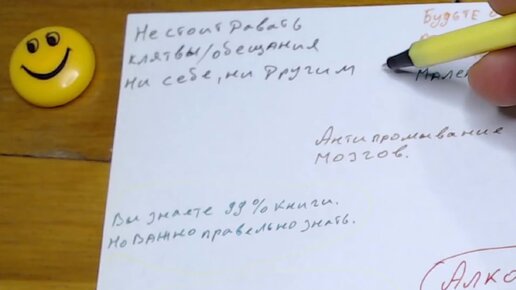 Не стоит давать
клятвы/обещания
ни себе, ни другим
Будьте
Мален
Антипромывание
мозгов.
Вы знаете 99% книги.
Но ВАЖНО правельно знать.
Алко